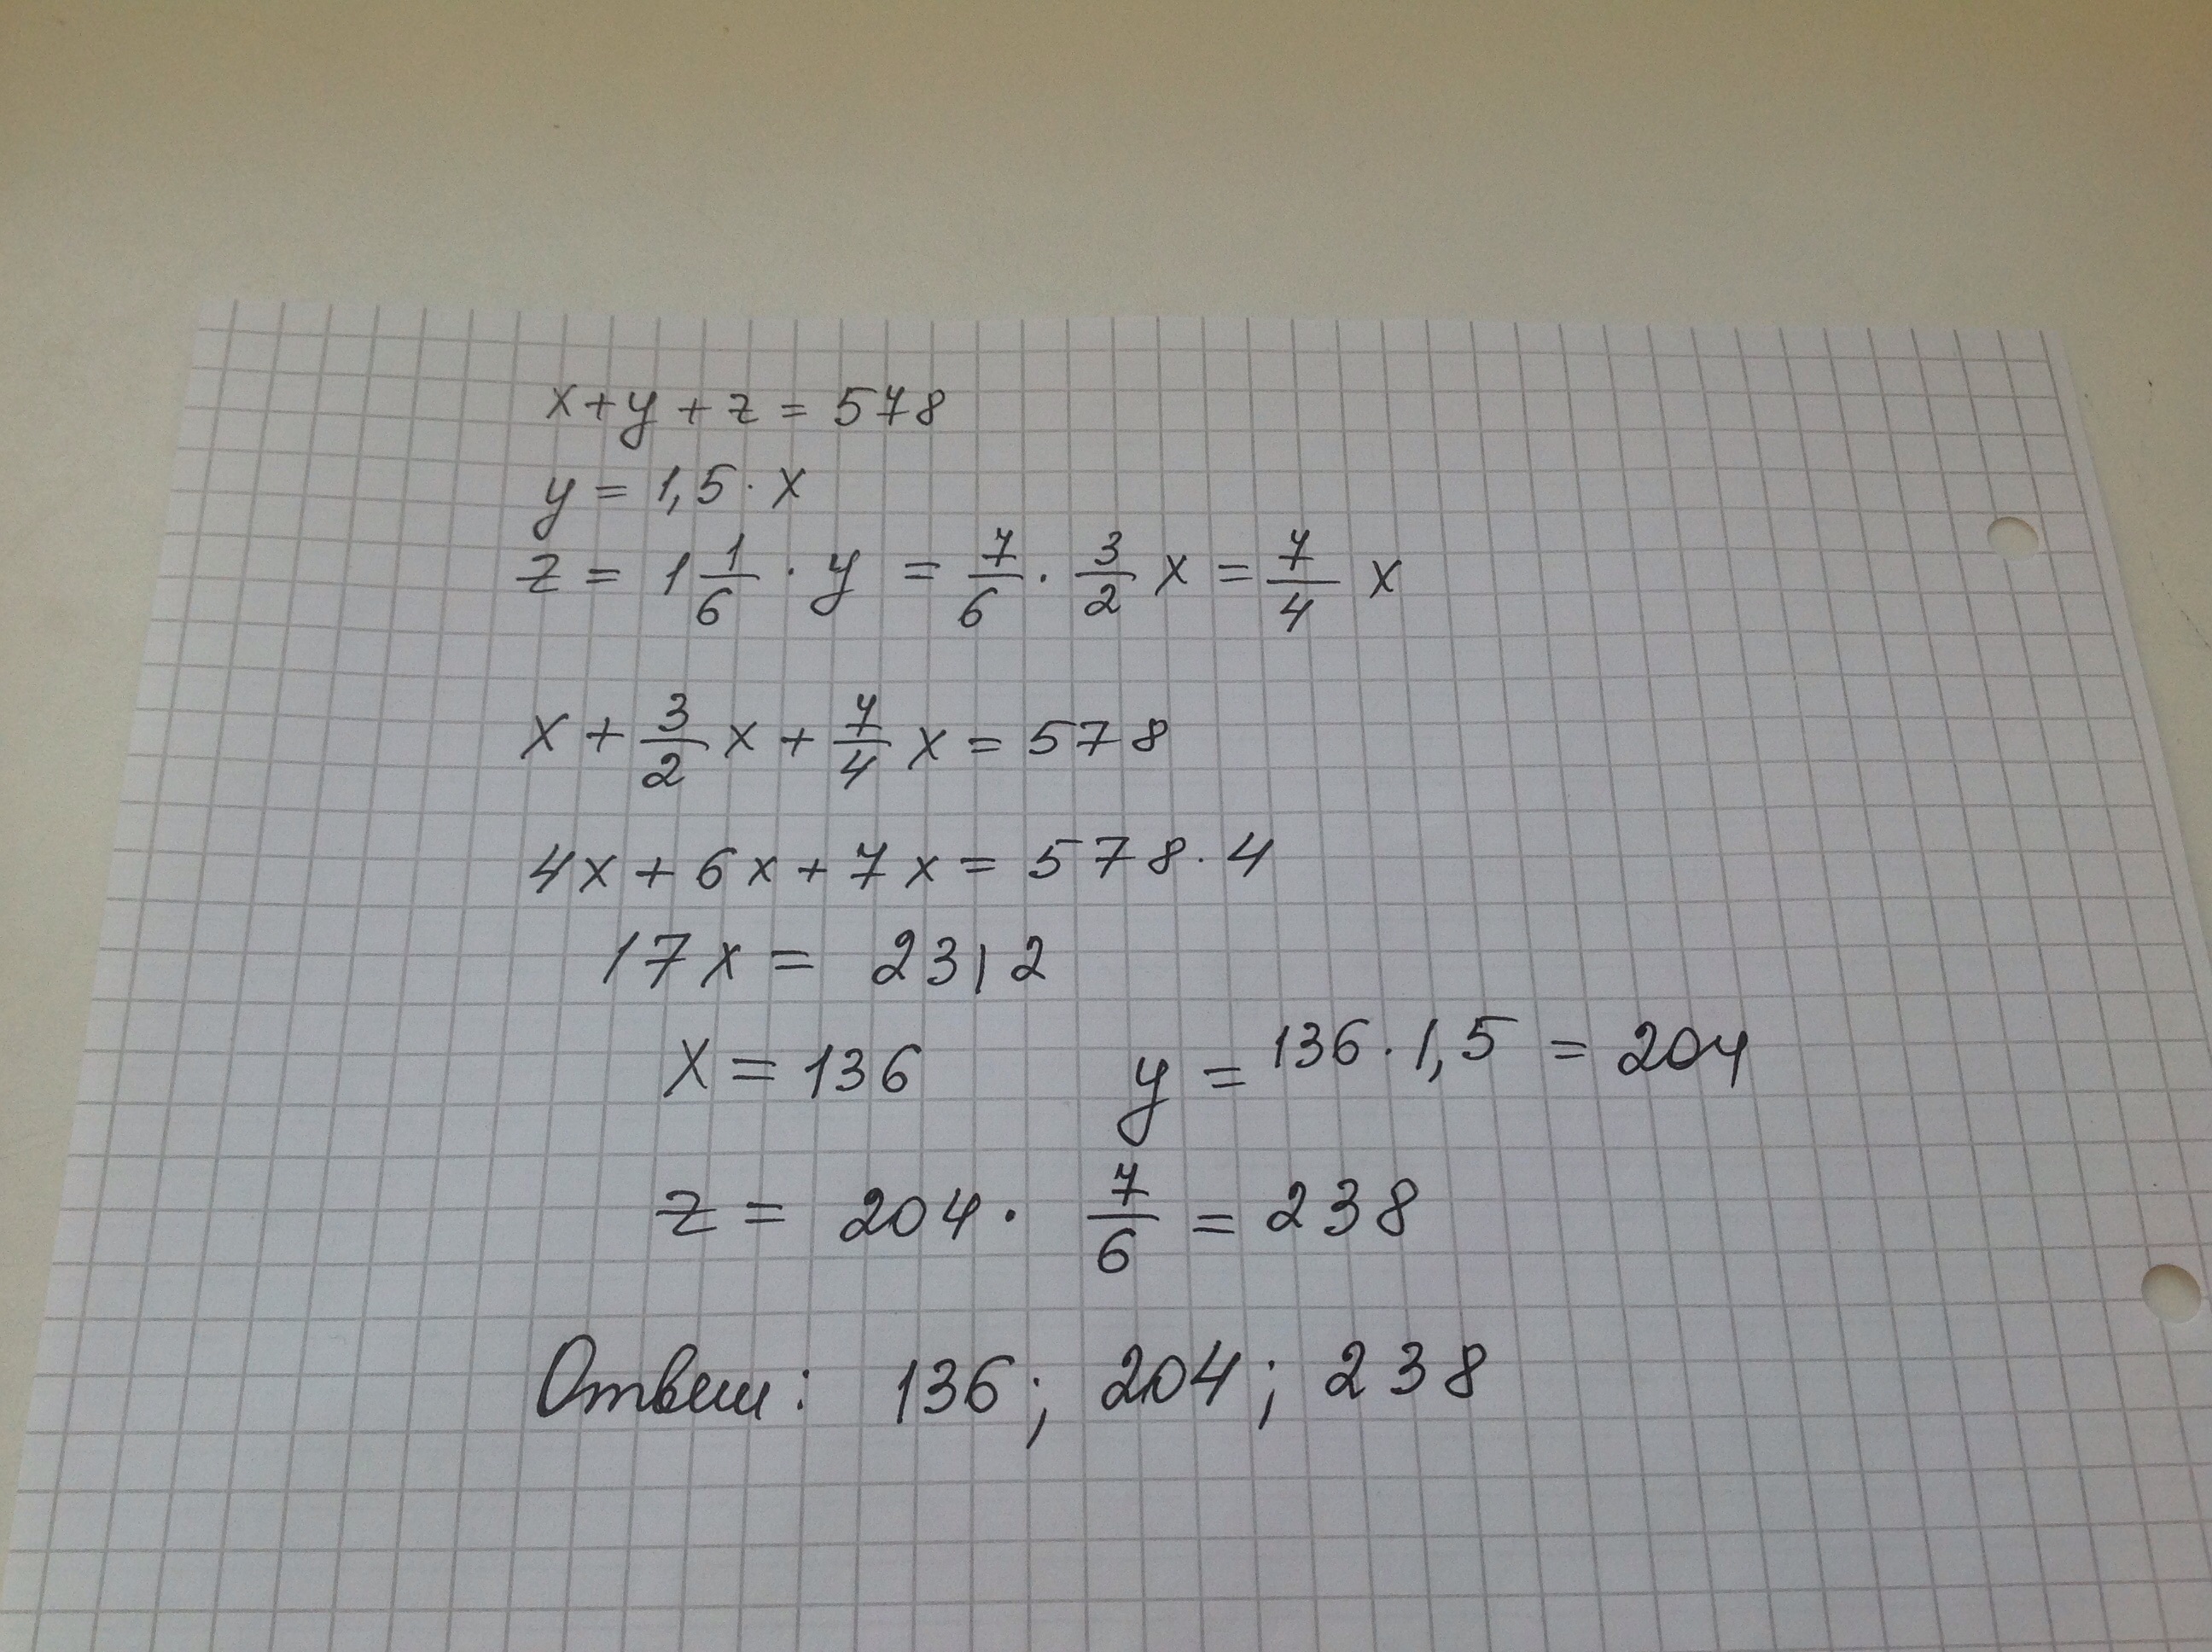 x+y+z=578
y=1,5·x
z=1 1/6·y=7/6·3/2 x=7/4 x
x+3/2 x+7/4 x=578
4x+6x+7x=578·4
17x=2312
x=136 y=136·1,5=204
z=204·7/6=238
Ответ: 136; 204; 238